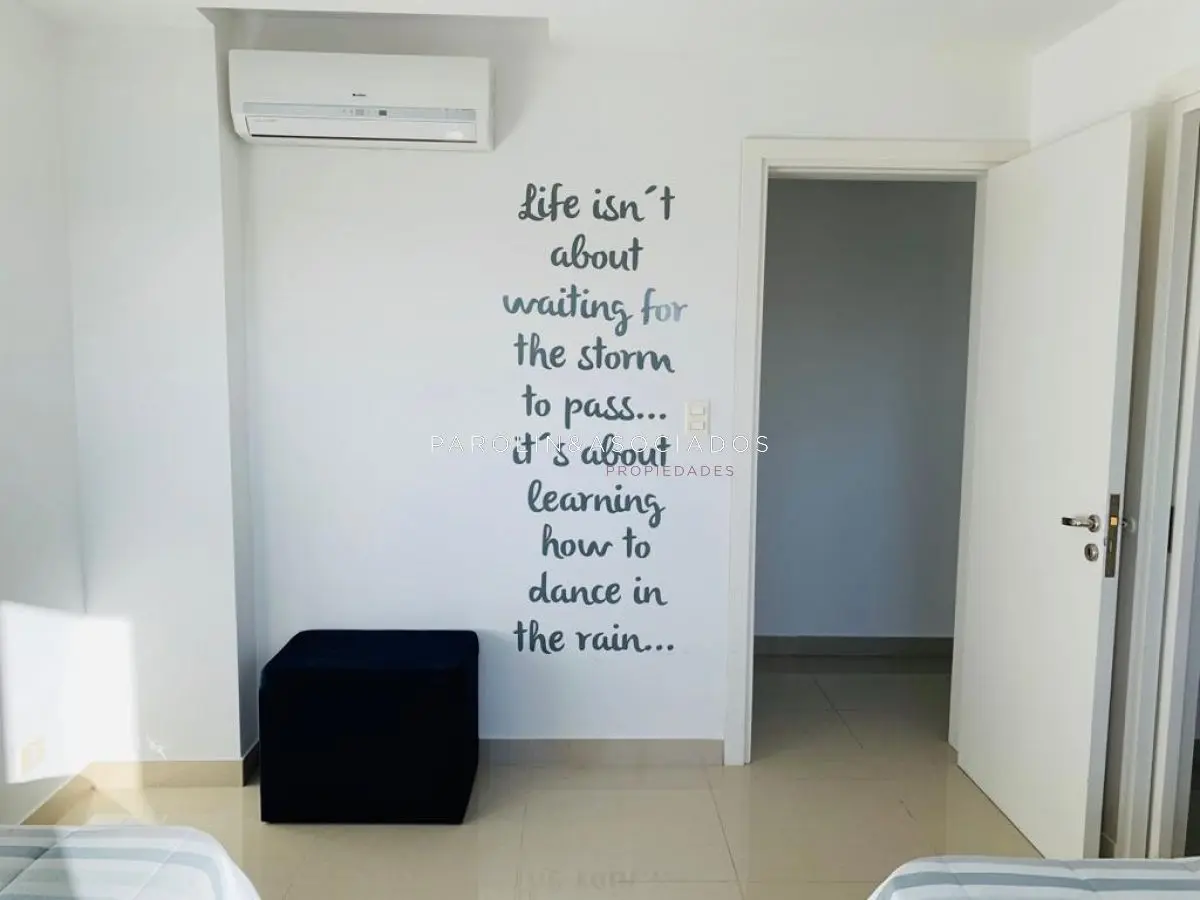 Life isn´t
about
waiting for
the storm
to pass...
PAROLIN&ASOCIADOS
it´s about
PROPIEDADES
learning
how to
dance in
the rain...